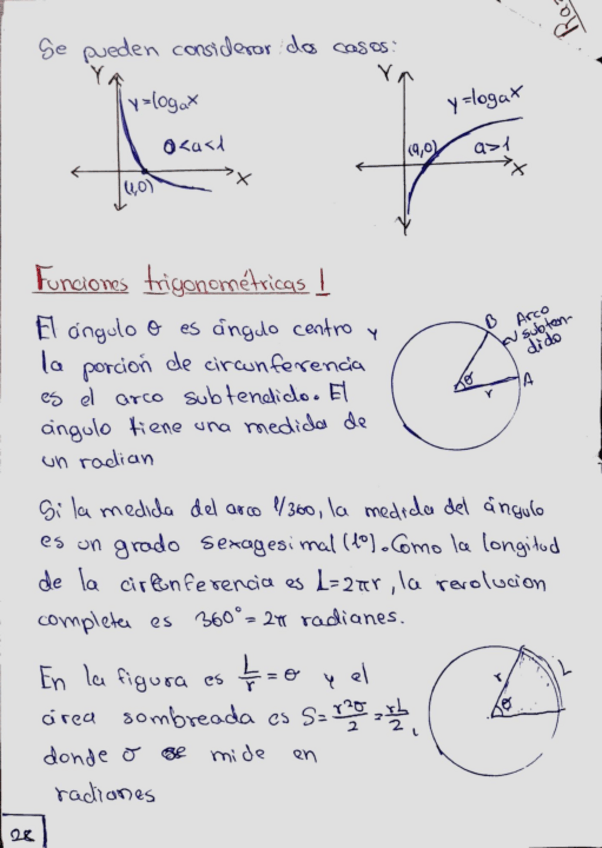 Raz
Se pueden considerar dos casos:
Y
y=logₐx
0<a<1
(1,0)
X
Y
y=logₐx
(9,0)
a>1
X
Y
Funciones trigonométricas I
El ángulo θ es ángulo centro y
la porción de circunferencia
es el arco subtendido. El
ángulo tiene una medida de
un radian
B
Arco
subten-
dido
θ
r
A
Si la medida del arco 1/360, la medida del ángulo
es un grado sexagesimal (1º). Como la longitud
de la circunferencia es L=2πr, la revolucion
completa es 360°=2π radianes.
En la figura es L/r = θ y el
área sombreada es S= r²σ/2 = rL/2,
donde σ se mide en
radianes
r
L
θ
28